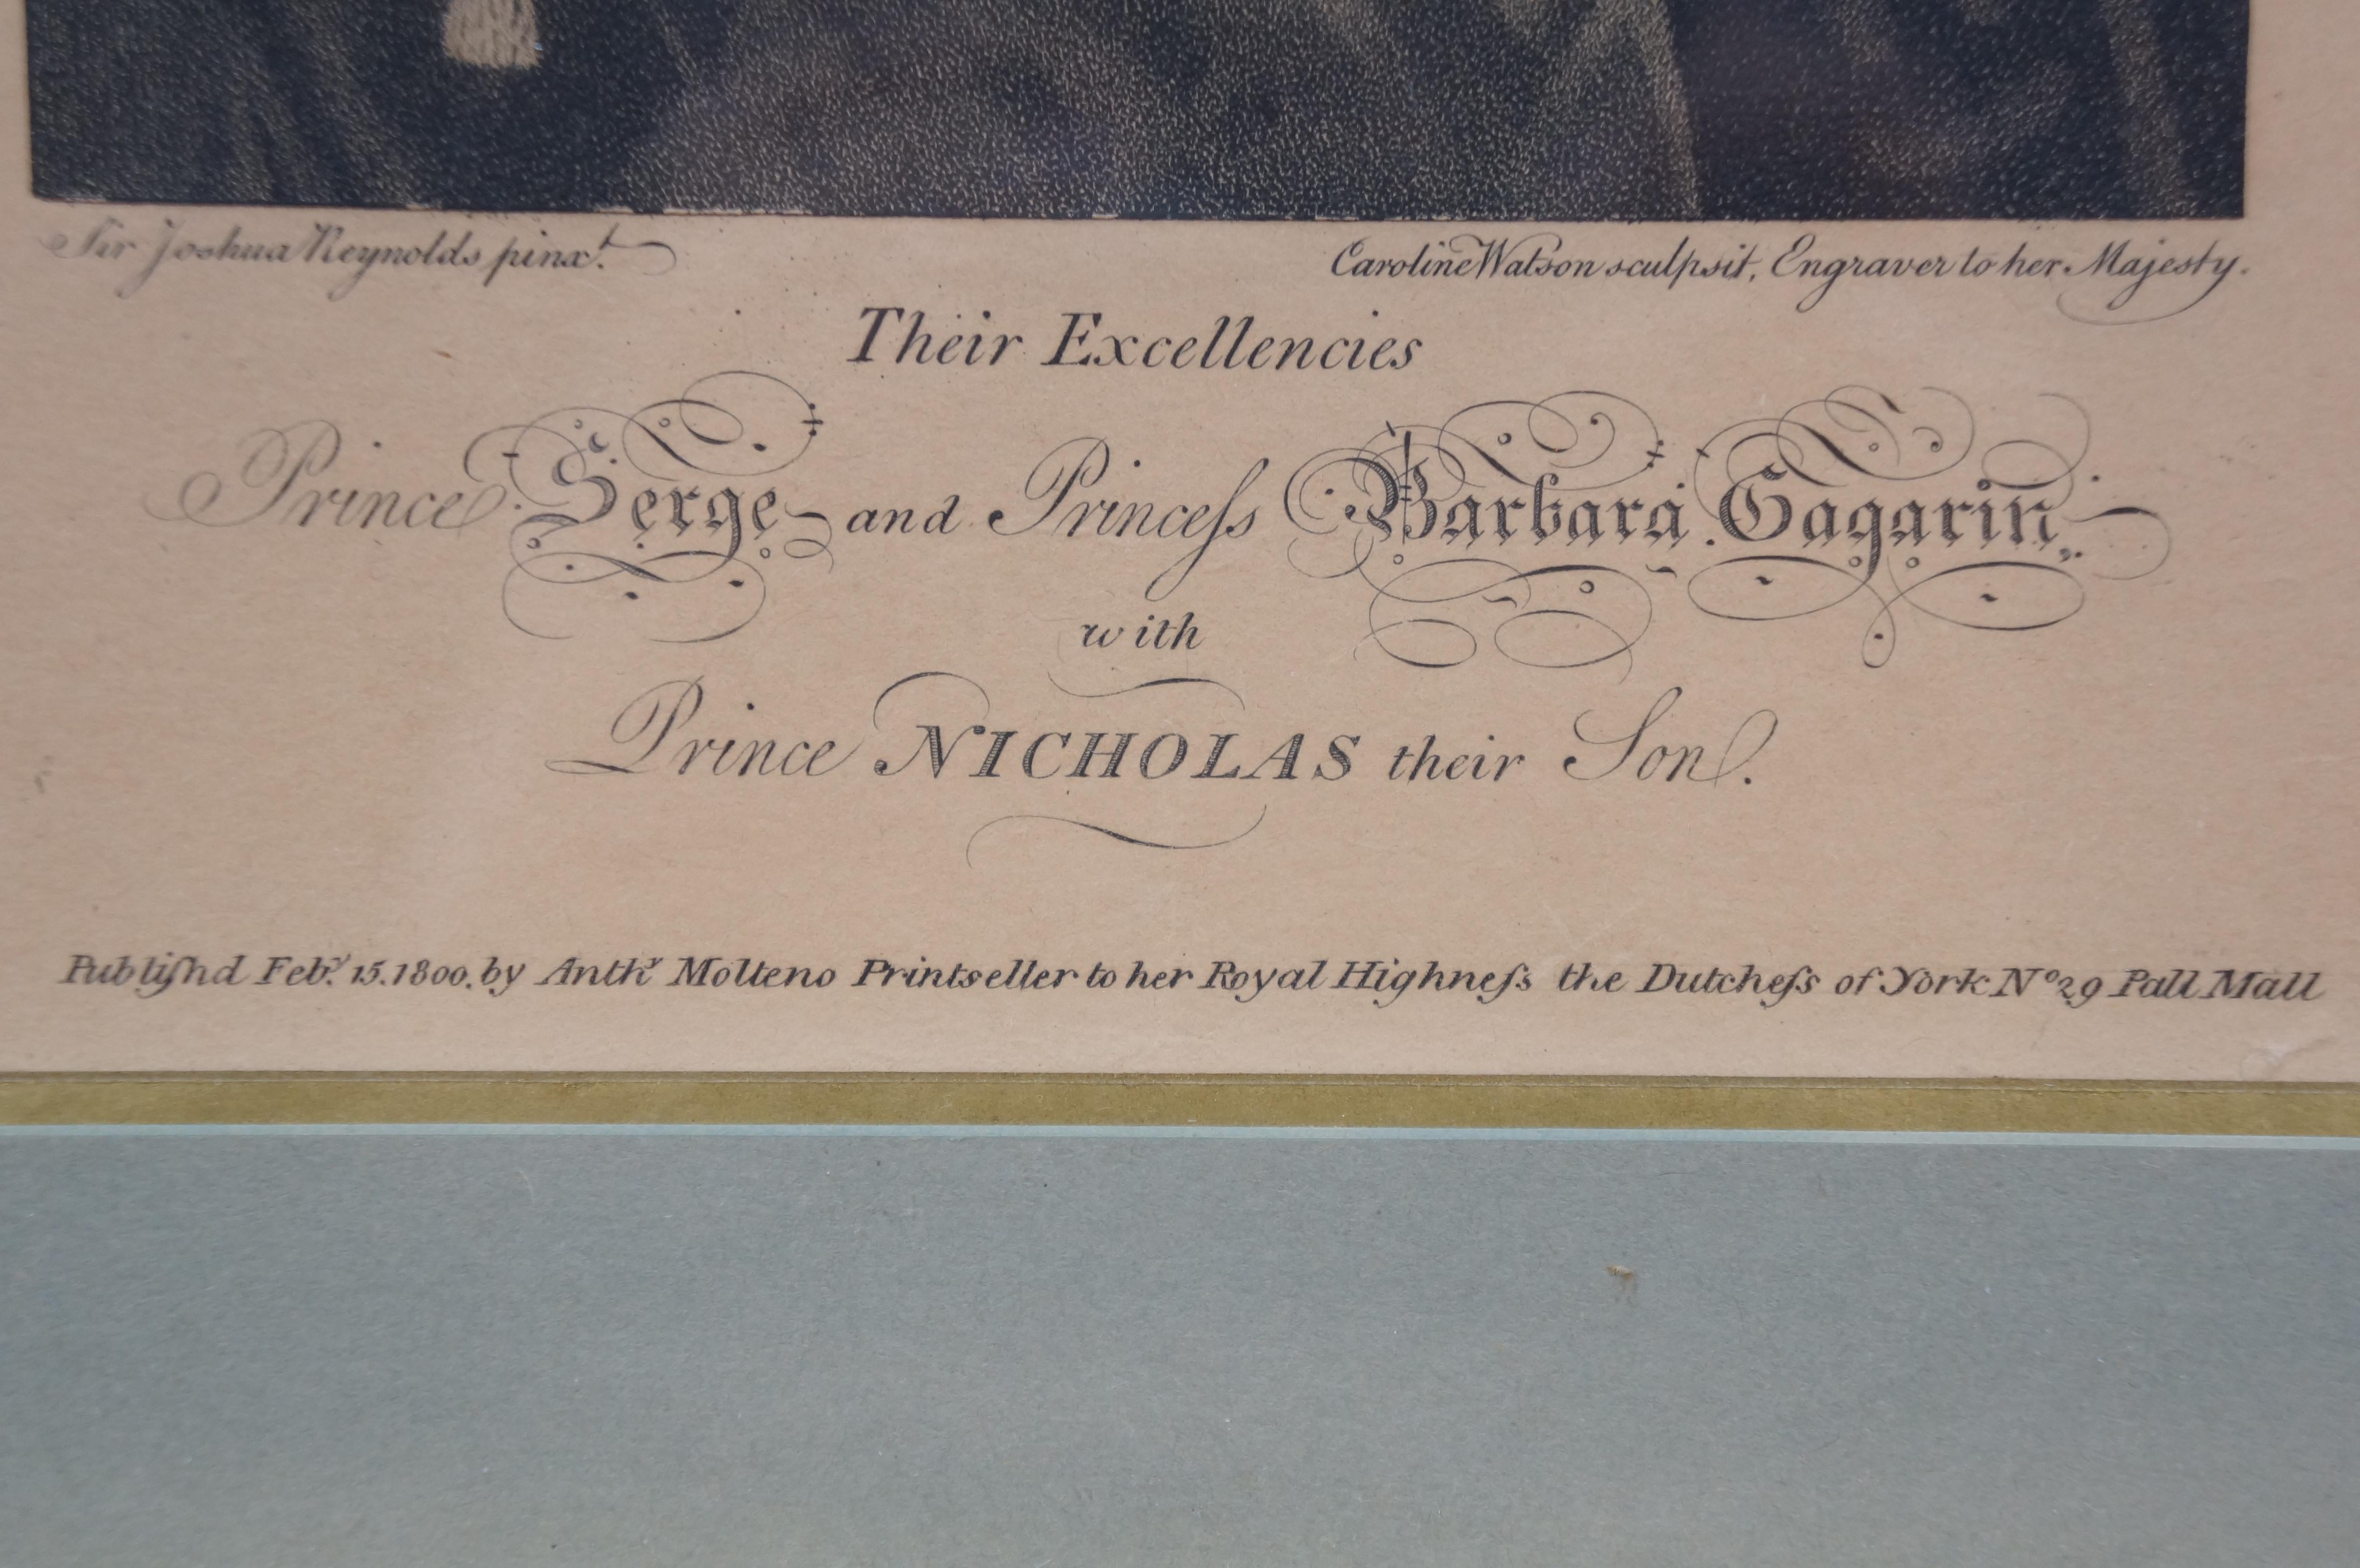 Sir Joshua Reynolds pinx.t
Caroline Watson sculpsit, Engraver to her Majesty.
Their Excellencies
Prince Serge and Princeſs Barbara Gagarin
with
Prince NICHOLAS their Son.
Publiſhd Feb.y 15.1800. by Anth.y Molteno Printseller to her Royal Highneſs the Dutcheſs of York No 29 Pall Mall